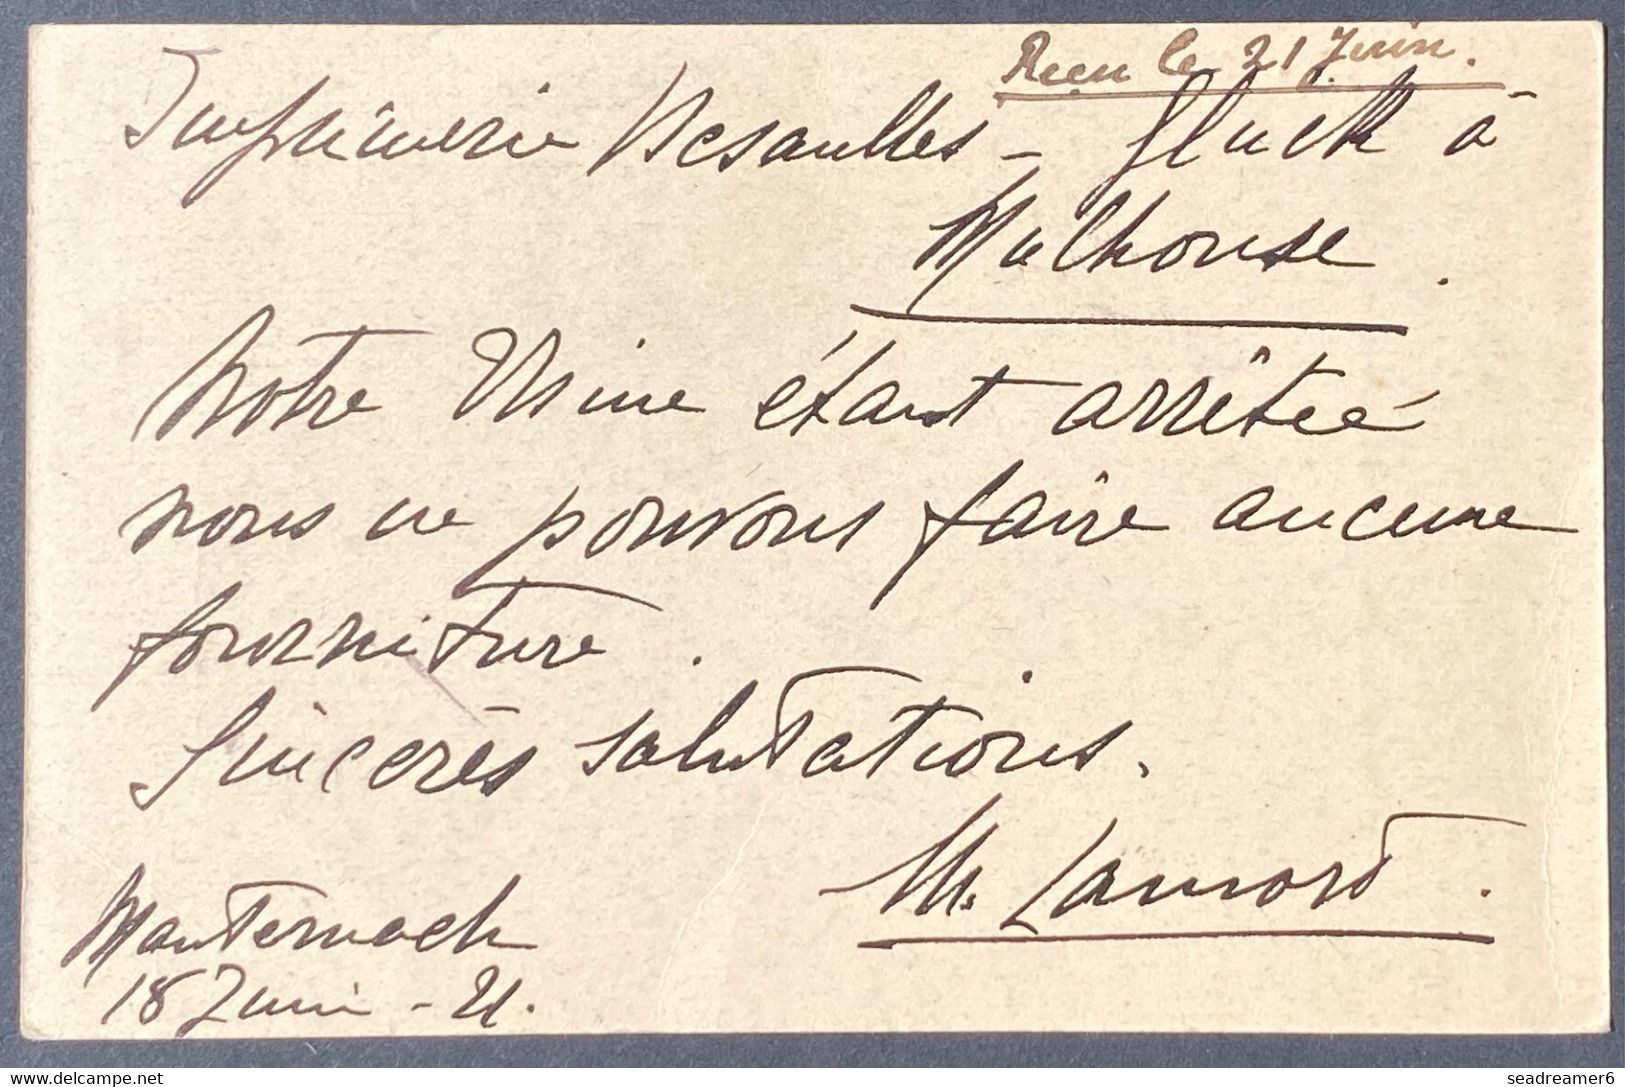 Recu le 21 Juin.
Imprimerie Desaulles - Gluck à
Mulhouse.
Notre Usine étant arrêtée
nous ne pouvons faire aucune
fourniture.
Sincères salutations.
M. Lamort.
Manternach
18 Juin - 21.
www.delcampe.net
seadreamer6